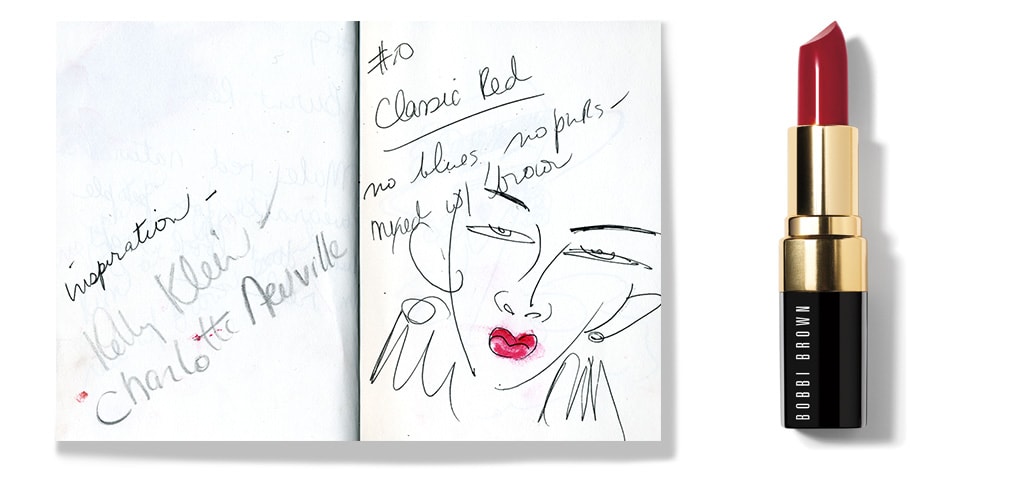 inspiration -
Kelly Klein -
Charlotte Neuville
#10
Classic Red
no blues no pinks -
mixed w/ brown
BOBBI BROWN